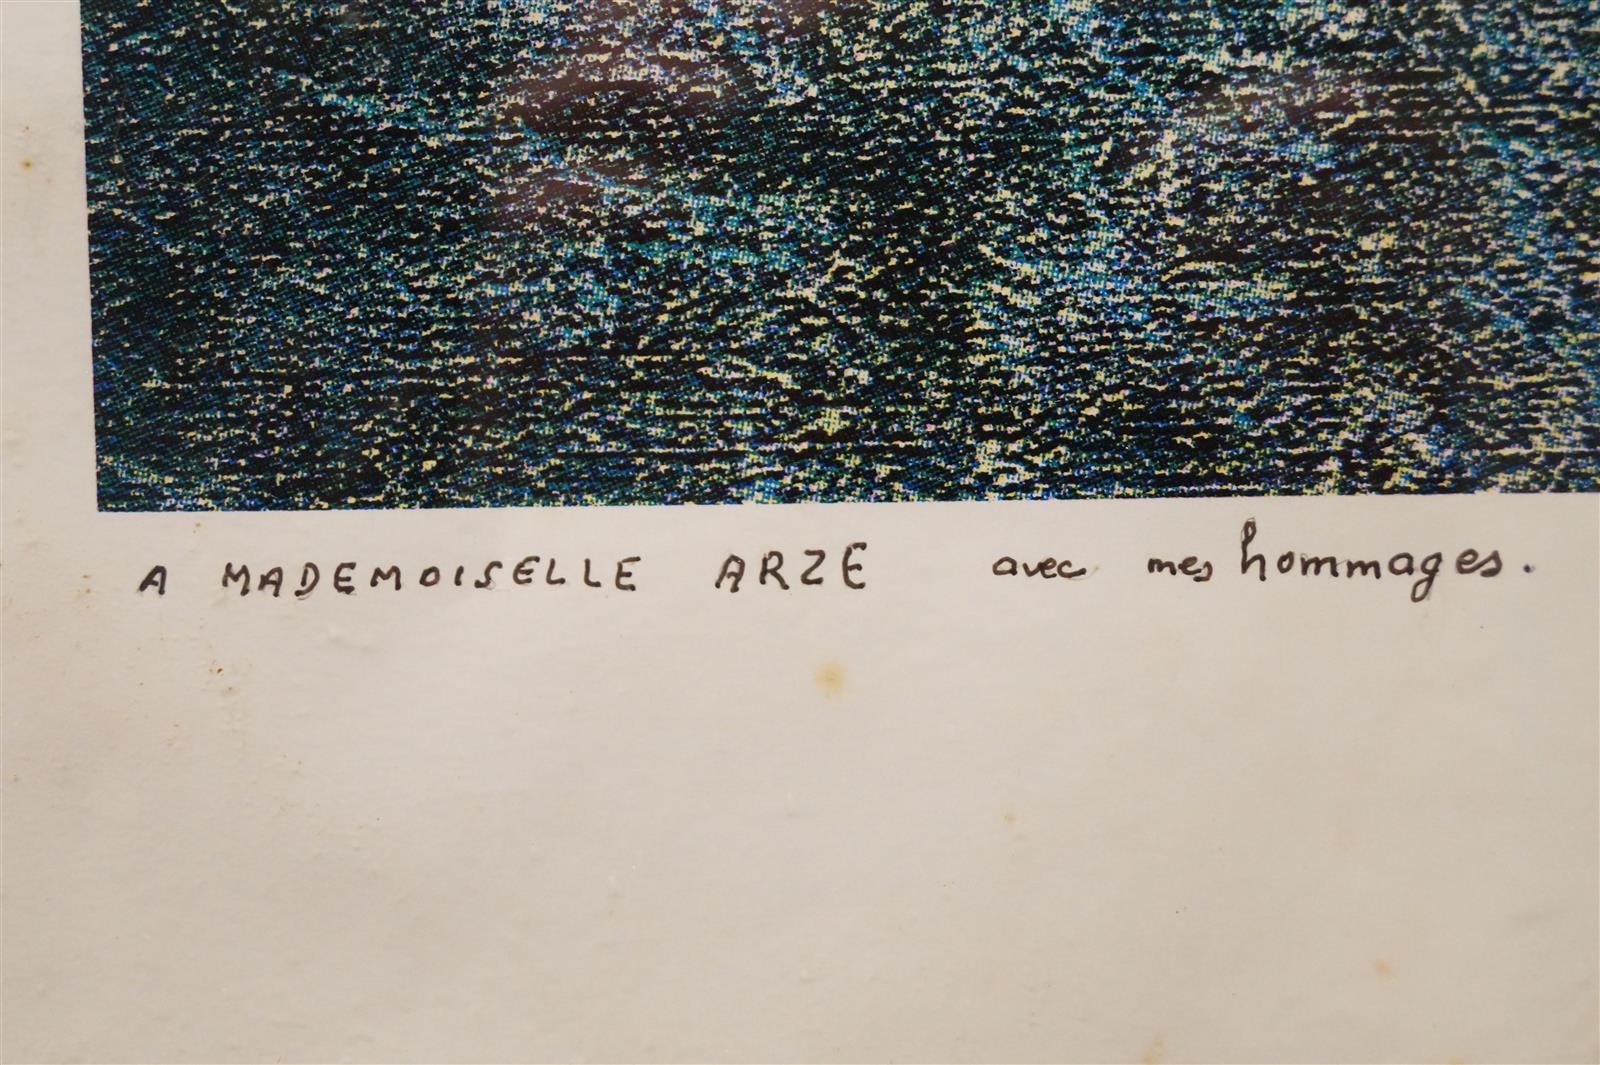 A MADEMOISELLE ARZE avec mes hommages.